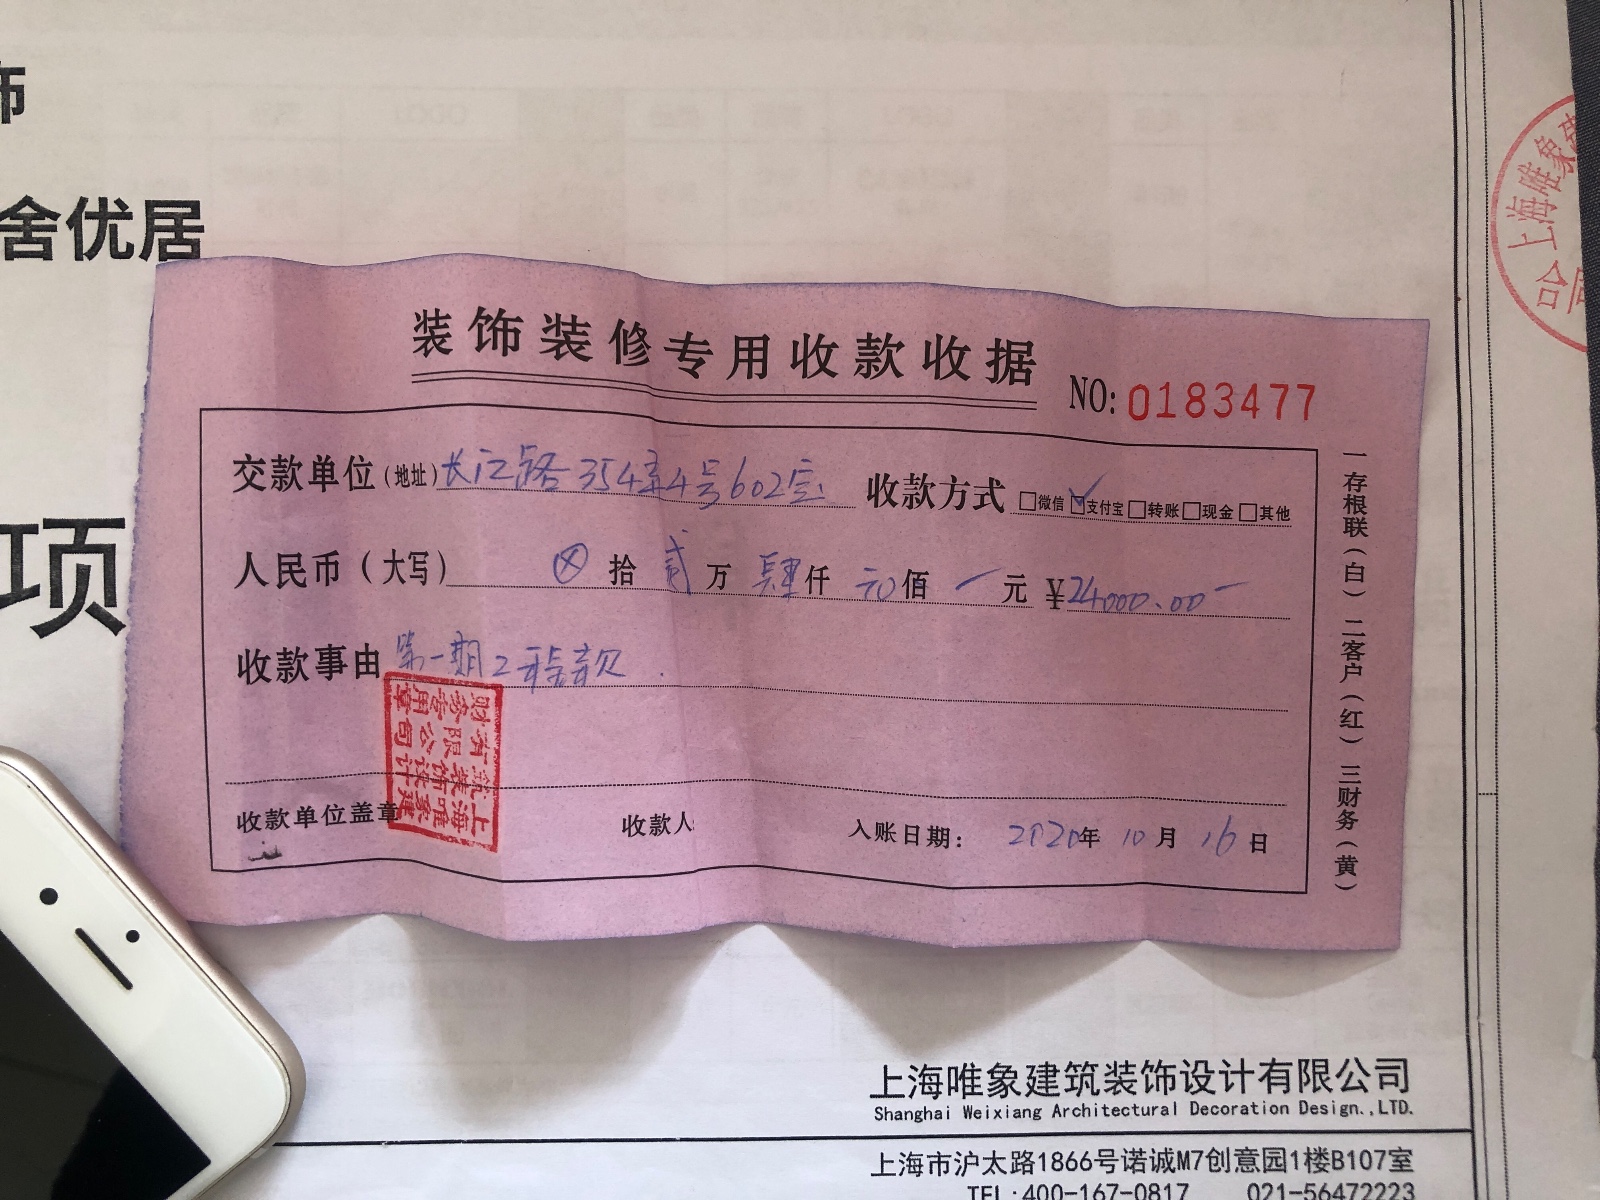 饰
舍优居
项
上海唯象建
合同
装饰装修专用收款收据 NO: 0183477
交款单位(地址) 长江路354弄4号602室 收款方式 □微信 ☑支付宝 □转账 □现金 □其他
人民币(大写) ⊗ 拾 贰 万 肆 仟 元 佰 一 元 ¥24000.00-
收款事由 第一期工程款.
上海唯象建筑装饰设计有限公司财务专用章
收款单位盖章 收款人 入账日期: 2020年 10月 16日
一存根联(白) 二客户(红) 三财务(黄)
上海唯象建筑装饰设计有限公司
Shanghai Weixiang Architectural Decoration Design.,LTD.
上海市沪太路1866号诺诚M7创意园1楼B107室
TEL:400-167-0817 021-56472223